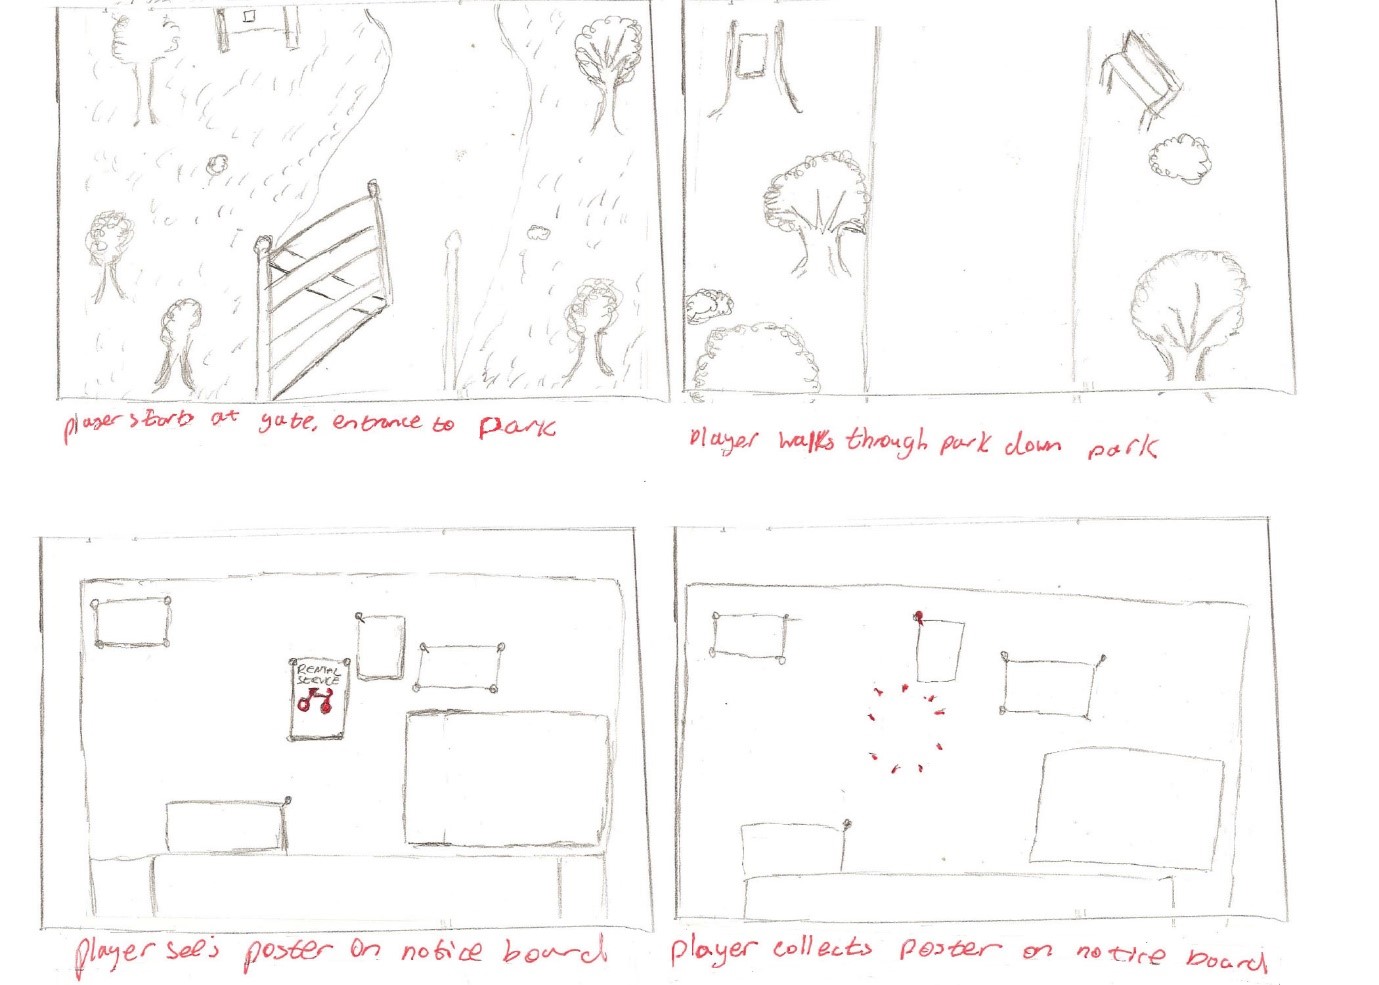 player starts at gate, entrance to park
player walks through park down park
RENTAL
SERVICE
player sees poster on notice board
player collects poster on notice board